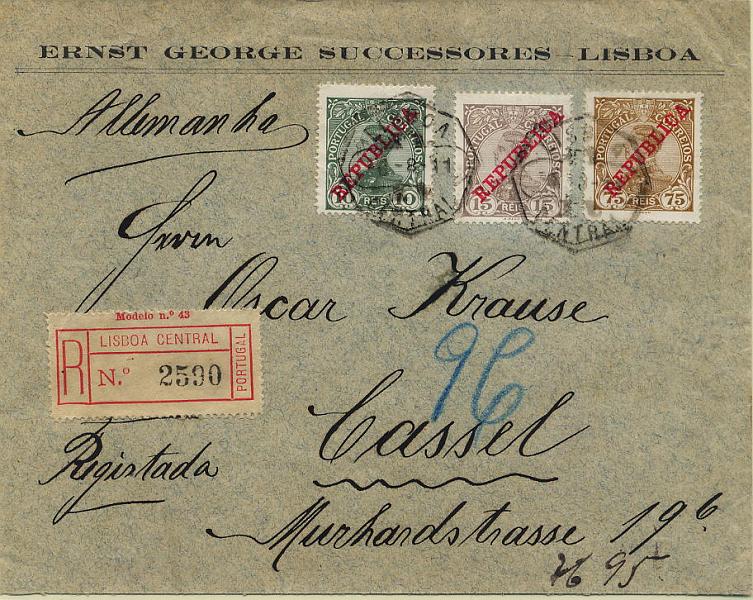 ERNST GEORGE SUCCESSORES - LISBOA
Allemanha
PORTUGAL CORREIOS
REPUBLICA
10 REIS 10
PORTUGAL CORREIOS
REPUBLICA
15 REIS 15
PORTUGAL CORREIOS
REPUBLICA
75 REIS 75
CENTRAL
CENTRAL
Herrn
Oscar Krause
Modelo n.º 43
R
LISBOA CENTRAL
N.º 2590
PORTUGAL
96
Cassel
Registada
Murhardstrasse 19 6.
95